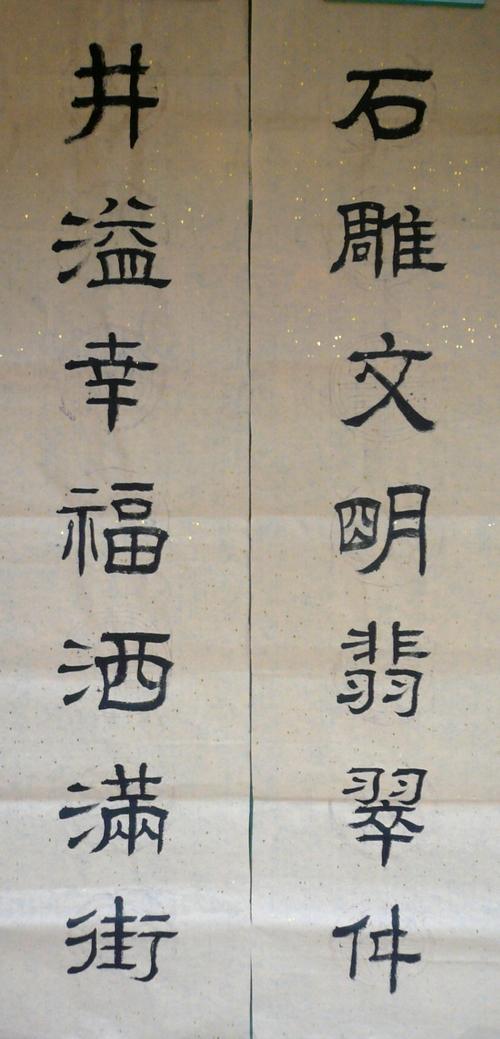 石雕文明翡翠件
井溢幸福洒滿街